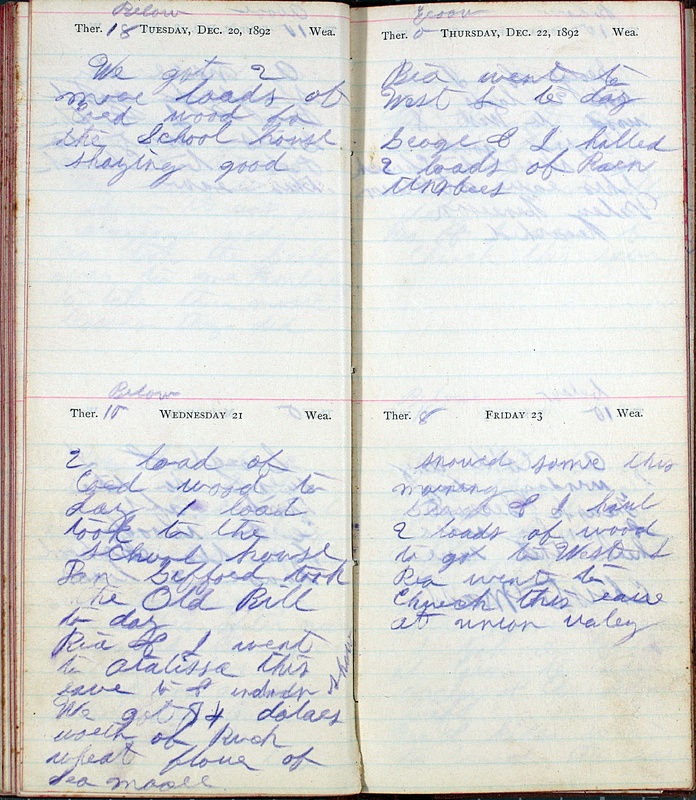 Below
Ther. 18 TUESDAY, DEC. 20, 1892 Wea.
We got 2
more loads of
Coed wood to
the School house
Shaying good
Below
Ther. 10 WEDNESDAY 21 Wea.
2 load of
Coed wood to
day 1 load
took to the
School house
Dan Gifford took
the Old Bill
to day
Rea & I went
to atalissa this
eave to & indian show
We got $4 dolaes
woeth of Buck
wheat floue of
Ther. 0 THURSDAY, DEC. 22, 1892 Wea.
Rea went to
West L to day
Geoage & I halled
2 loads of
timbees
Ther. 8 FRIDAY 23 Wea.
snowed some this
moening
& I haul
2 loads of wood
to go to West L
Rea went to
Chuech this eave
at union valey